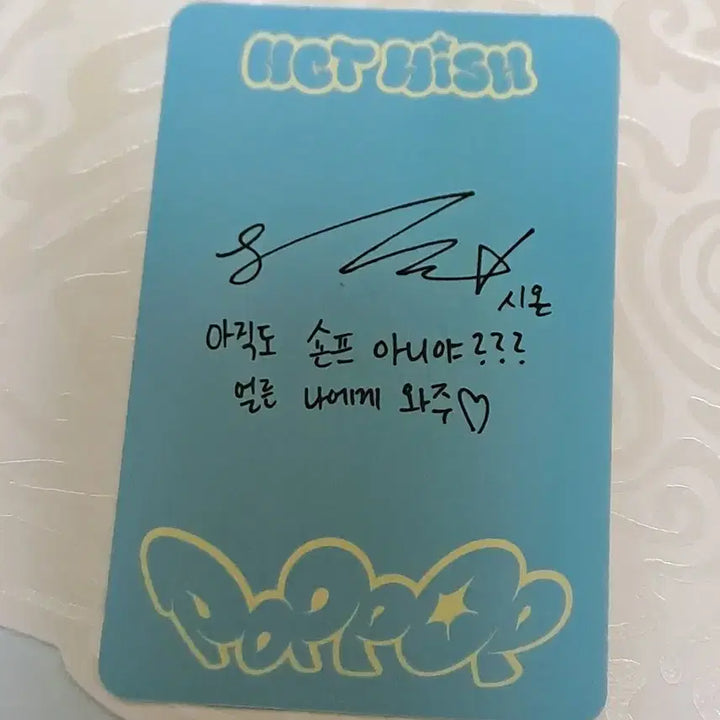 NCT WISH
시온
아직도 숀프 아니야???
얼른 나에게 와주♡
POPPOP